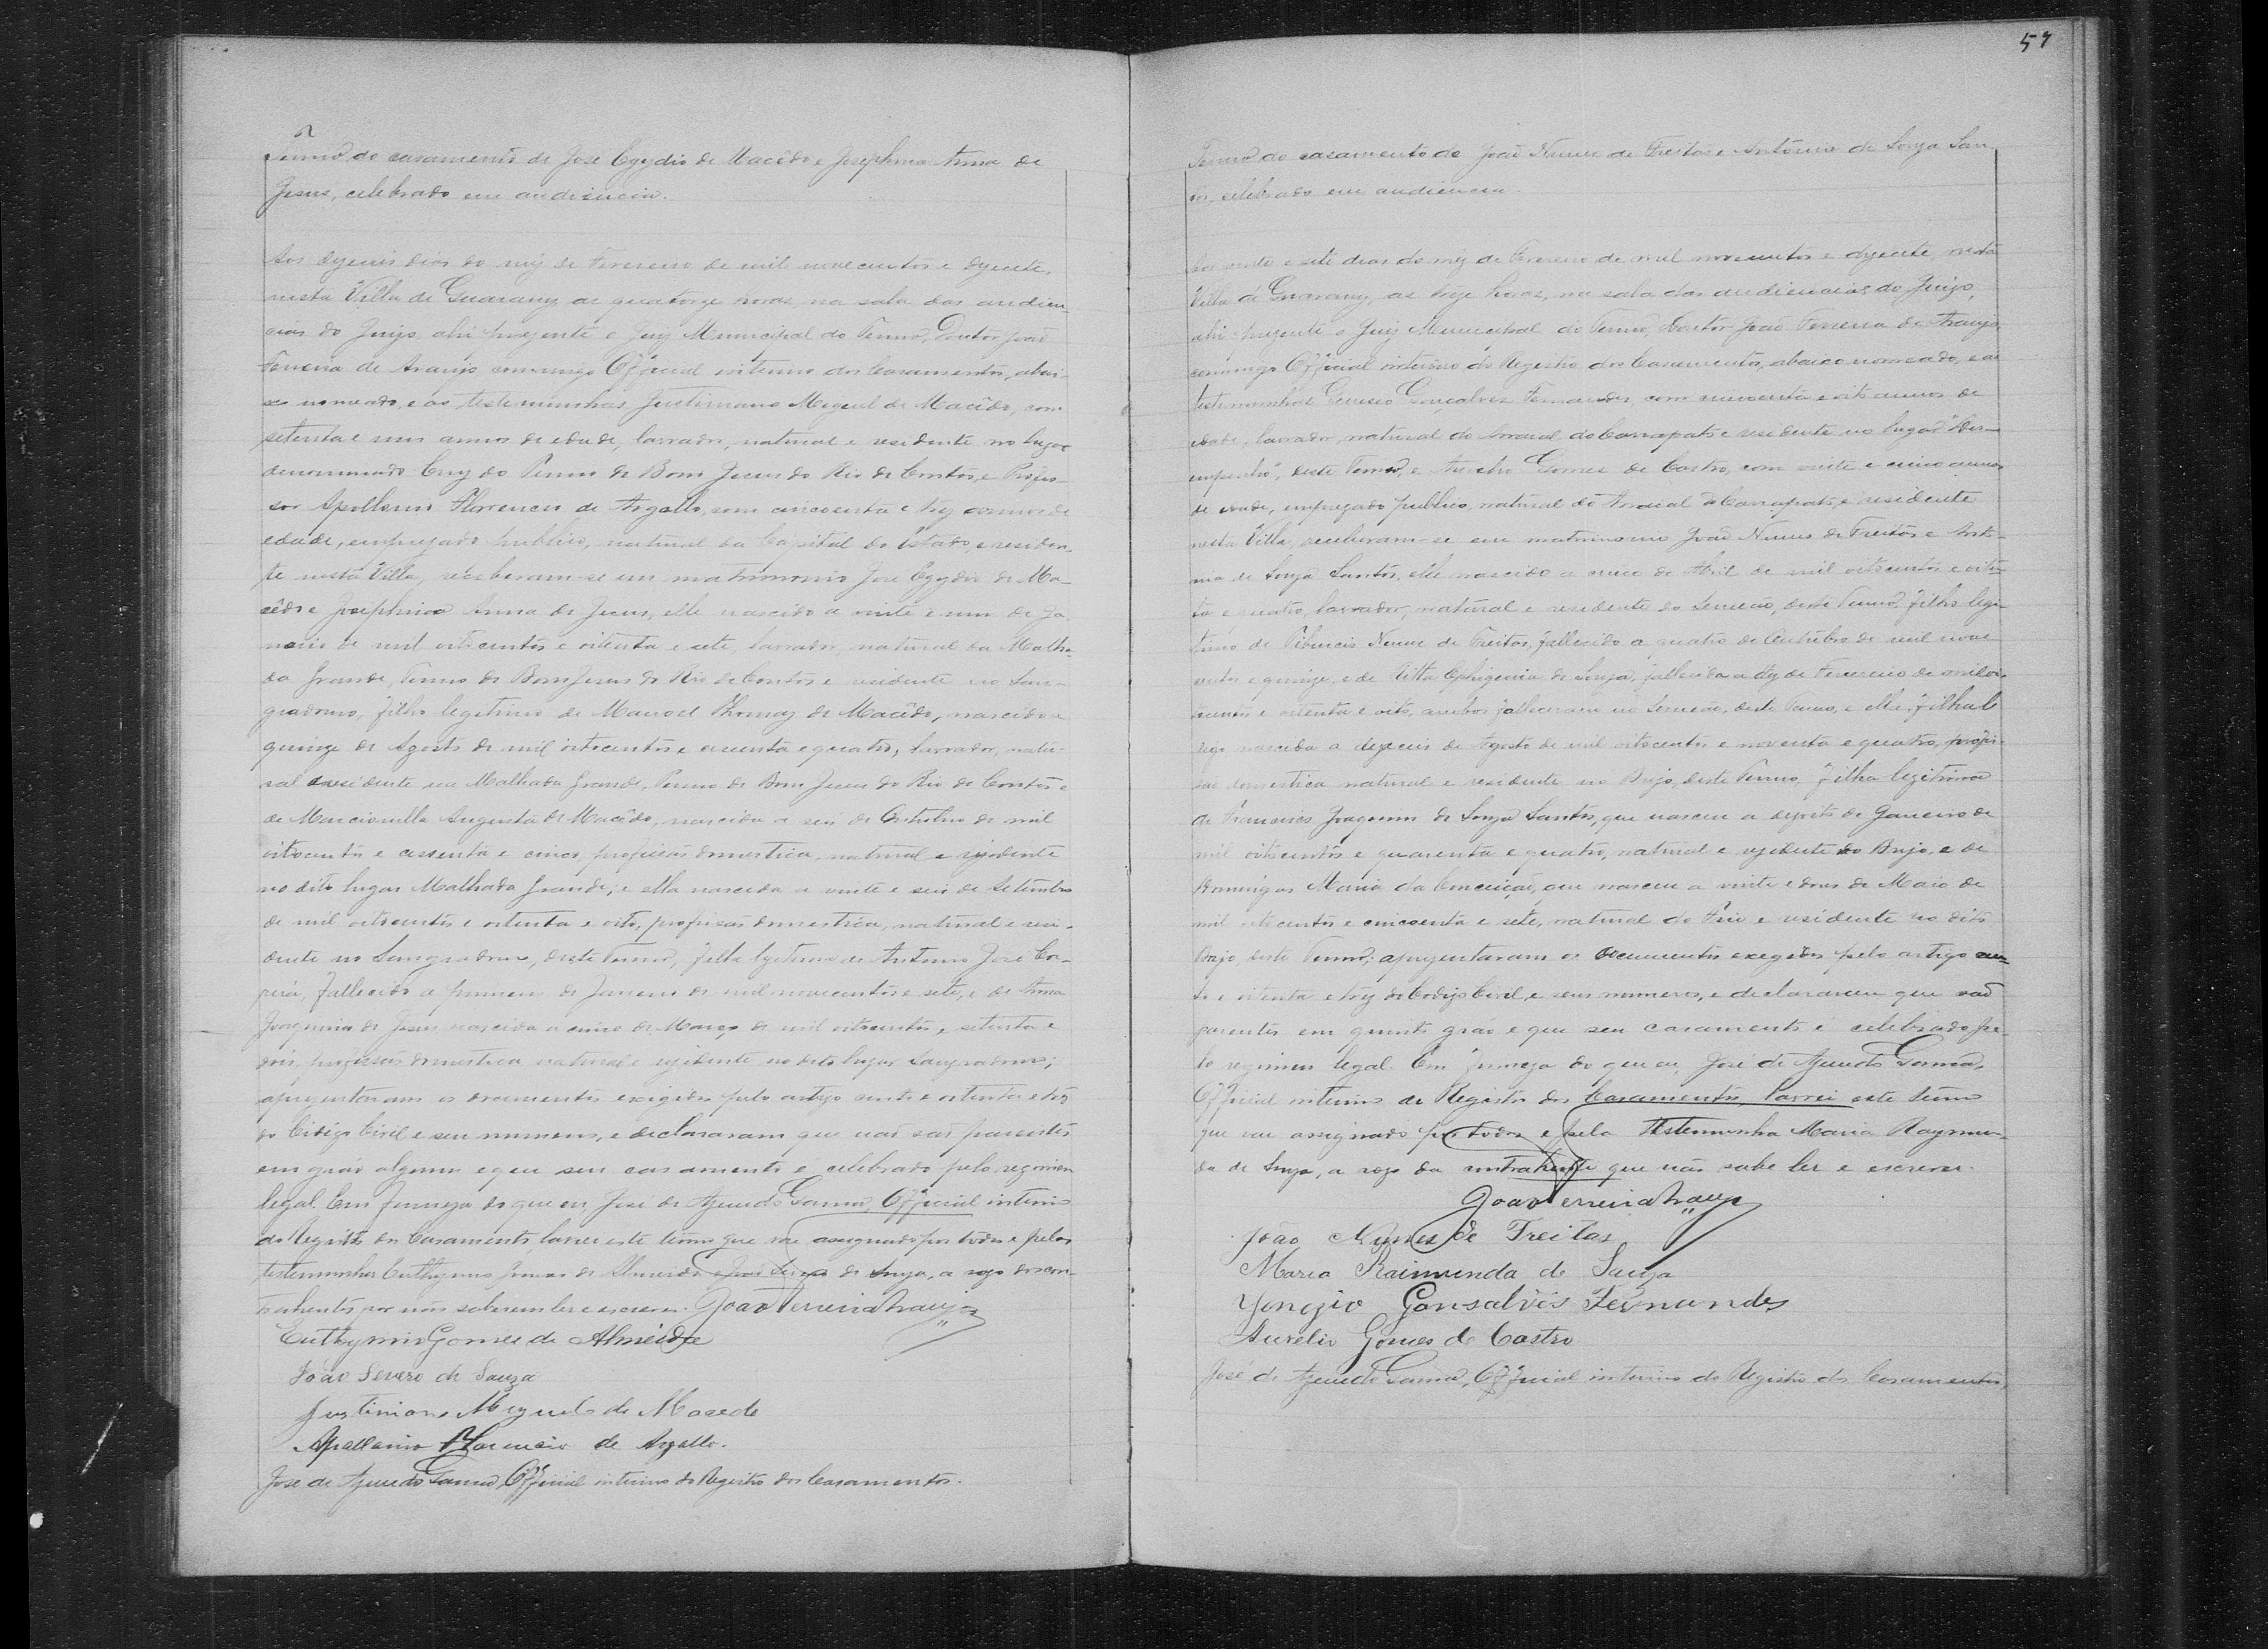 57
Termo do casamento de José Egydio de Macêdo e Josephina Anna de
Jesus, celebrado em audiencia.
Aos dezeseis dias do mez de Fevereiro de mil novecentos e dezesete,
nesta Villa de Guarany as quatorze horas na sala das audien-
cias do Juizo ahi prezente o Juiz Municipal do Termo, Doutor João
Ferreira de Araujo, commigo Official interino dos Casamentos, abai-
xo nomeado, e as testemunhas Justiniano Miguel de Macêdo, com
setenta e um annos de edade, lavrador, natural e residente no lugar
denominado Cruz do Termo de Bom Jesus do Rio de Contas, e Profes-
sor Apollonio Florencio de Argollo, com cincoenta e trez annos de
edade, empregado publico, natural da Capital do Estado, e residen-
te nesta Villa, receberam-se em matrimonio José Egydio de Ma-
cêdo e Josephina Anna de Jesus, elle nascido a vinte e um de Ja-
neiro de mil oitocentos e oitenta e sete, lavrador, natural da Malha-
da Grande, Termo do Bom Jesus do Rio de Contas e residente no San-
gradouro, filho legitimo de Manoel Thomaz de Macêdo, nascido a
quinze de Agosto de mil oitocentos e cincoenta e quatro, lavrador, natu-
ral e residente na Malhada Grande, Termo de Bom Jesus do Rio de Contas e
de Marcionilla Augusta de Macêdo, nascida a seis de Outubro de mil
oitocentos e cessenta e cinco, profissão domestica, natural e rezidente
no dito lugar Malhada Grande; e ella nascida a vinte e seis de Setembro
de mil oitocentos e oitenta e oito, profissão domestica, natural e resi-
dente no Sangradouro, deste Termo, filha legitima de Antonio José Cor-
reia, fallecido a primeiro de Janeiro de mil novecentos e sete, e de Anna
Joaquina de Jesus, nascida a cinco de Março de mil oitocentos e setenta e
dois, profissão domestica natural e rezidente no dito lugar Sangradouro;
aprezentaram os documentos exigidos pelo artigo cento e oitenta e trez
do Codigo Civil e seus numeros, e declararam que não são parentes
em gráo algum e que seu casamento é celebrado pelo regimen
legal. Em firmeza do que eu José de Azevedo Gama, Official interino
do Registro dos Casamentos, lavrei este termo que vae assignado por todos e pelas
testemunhas Euthymio Gomes de Almeida e João Severo de Souza, a rogo dos con-
trahentes por não saberem ler e escrever. João Ferreira Araujo
Euthymio Gomes de Almeida
João Severo de Souza
Justiniano Miguel de Macedo
Apollonio Florencio de Argollo.
José de Azevedo Gama, Official interino do Registro dos Casamentos.
Termo do casamento de João Nunes de Freitas e Antônia de Souza San-
tos, celebrado em audiencia.
Aos vinte e sete dias do mez de Fevereiro de mil novecentos e dezesete, nesta
Villa de Guarany, as treze horas, na sala das audiencias do Juizo,
ahi prezente o Juiz Municipal do Termo, Doutor João Ferreira de Araujo,
commigo Official interino do Registro dos Casamentos, abaixo nomeado, e as
testemunhas Genesio Gonçalves Fernandes, com cincoenta e oito annos de
edade, lavrador, natural do Arraial do Carrapato e residente no lugar "Des-
empenho", deste Termo, e Aurelio Gomes de Castro, com vinte e cinco annos
de edade, empregado publico, natural do Arraial do Carrapato, e residente
nesta Villa, receberam-se em matrimonio João Nunes de Freitas e Anto-
nia de Souza Santos, elle nascido a cinco de Abril de mil oitocentos e oiten-
ta e quatro, lavrador, natural e residente do deste Termo, filho legi-
timo de Tiburcio Nunes de Freitas, fallecido a quatro de Outubro de mil nove
centos e quinze, e de Ritta Ephigenia de Souza, fallecida a dez de Fevereiro de mil oi-
tocentos e oitenta e oito, ambos falleceram no deste Termo, e ella filha le
digo nascida a dezeseis de Agosto de mil oitocentos e noventa e quatro, profis-
são domestica natural e residente no Brejo, deste Termo, filha legitima
de Francisco Joaquim de Souza Santos, que nasceu a dezoito de Janeiro de
mil oitocentos e quarenta e quatro, natural e rezidente do Brejo, e de
Domingas Maria da Conceição, que nasceu a vinte e dous de Maio de
mil oitocentos e cincoenta e sete, natural do e residente no dito
Brejo deste Termo; aprezentaram os documentos exegidos pelo artigo cen-
to e oitenta e trez do Codigo Civil, e seus numeros, e declararam que são
parentes em quinto gráo e que seu casamento é celebrado pe-
lo regimen legal. Em firmeza do que eu, José de Azevedo Gama,
Official interino do Registro dos Casamentos, lavrei este termo
que vae assignado por todos e pela testemunha Maria Raymun-
da de Souza, a rogo da contrahente que não sabe ler e escrever.
João Ferreira Araujo
João Nunes de Freitas
Maria Raimunda de Souza
Yenezio Gonsalves Fernandes
Aurelio Gomes de Castro
José de Azevedo Gama, Official interino do Registro dos Casamentos,